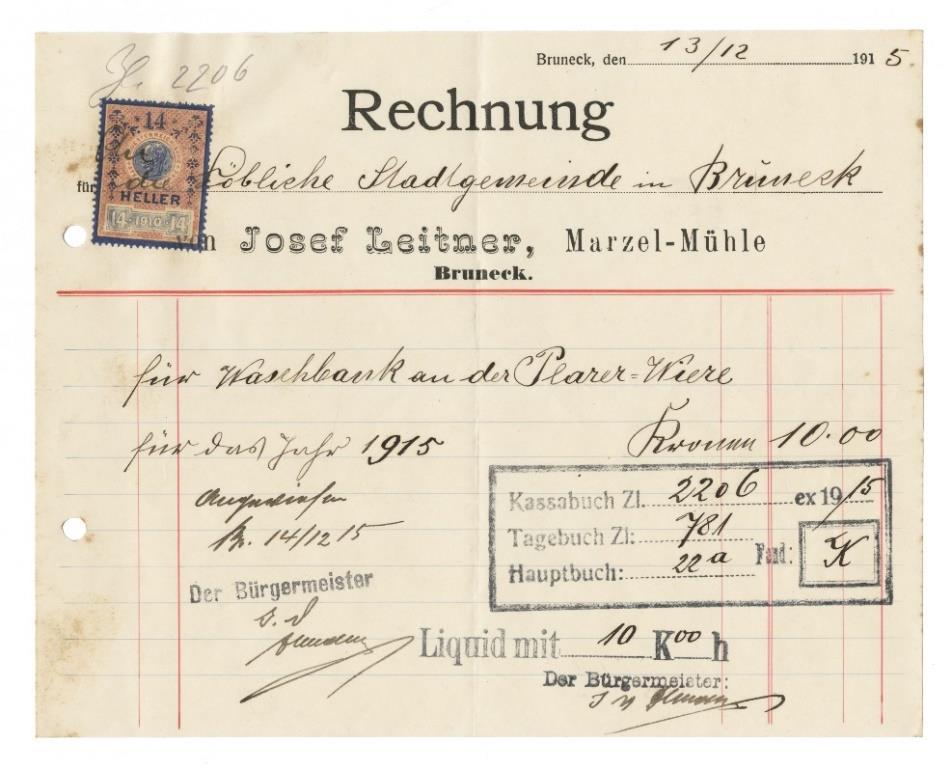 Z. 2206
Bruneck, den 13/12 1915.
Rechnung
14
HELLER
14 1910 14
An die
für Löbliche Stadtgemeinde in Bruneck
von Josef Leitner, Marzel-Mühle
Bruneck.
für Waschbank an der Plarer=Wiere
für das Jahr 1915 Kronen 10.00
Angewiesen
Br. 14/12 15
Der Bürgermeister
Kassabuch Zl. 2206 ex 19/15
Tagebuch Zl: 781
Hauptbuch: 22a Fud: K
Liquid mit 10 K 00 h
Der Bürgermeister: